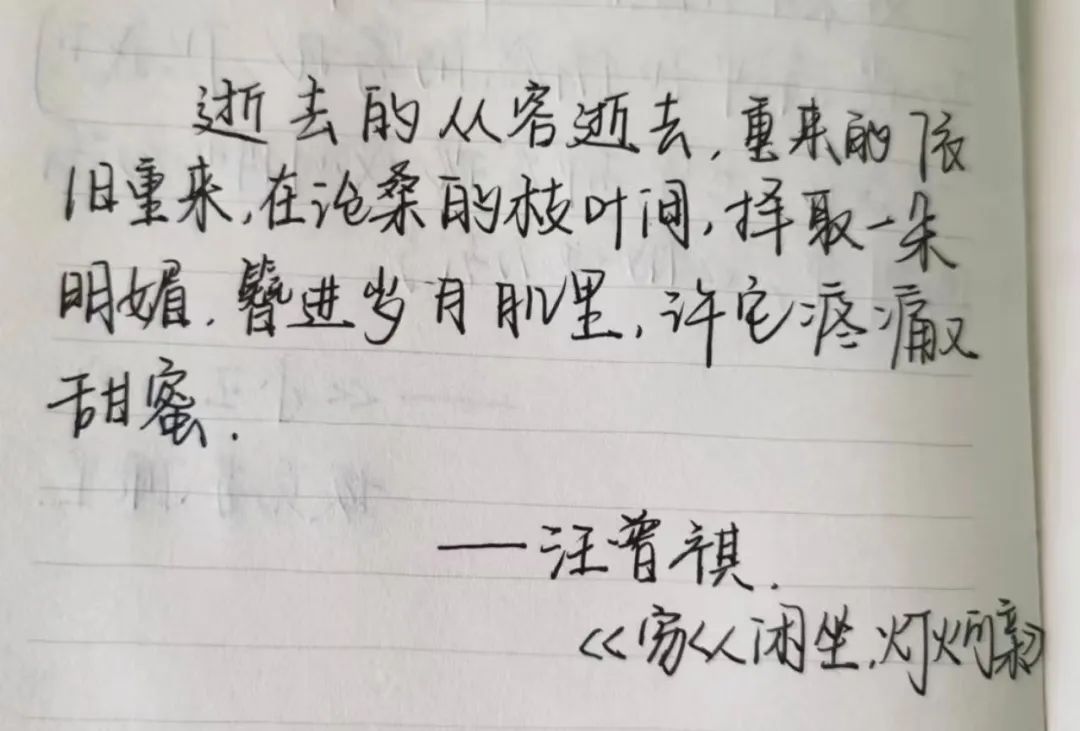 逝去的从容逝去,重来的依
旧重来,在沧桑的枝叶间,择取一朵
明媚.簪进岁月肌里,许它疼痛又
甜蜜.
——汪曾祺.
<<家人闲坐,灯火可亲>>